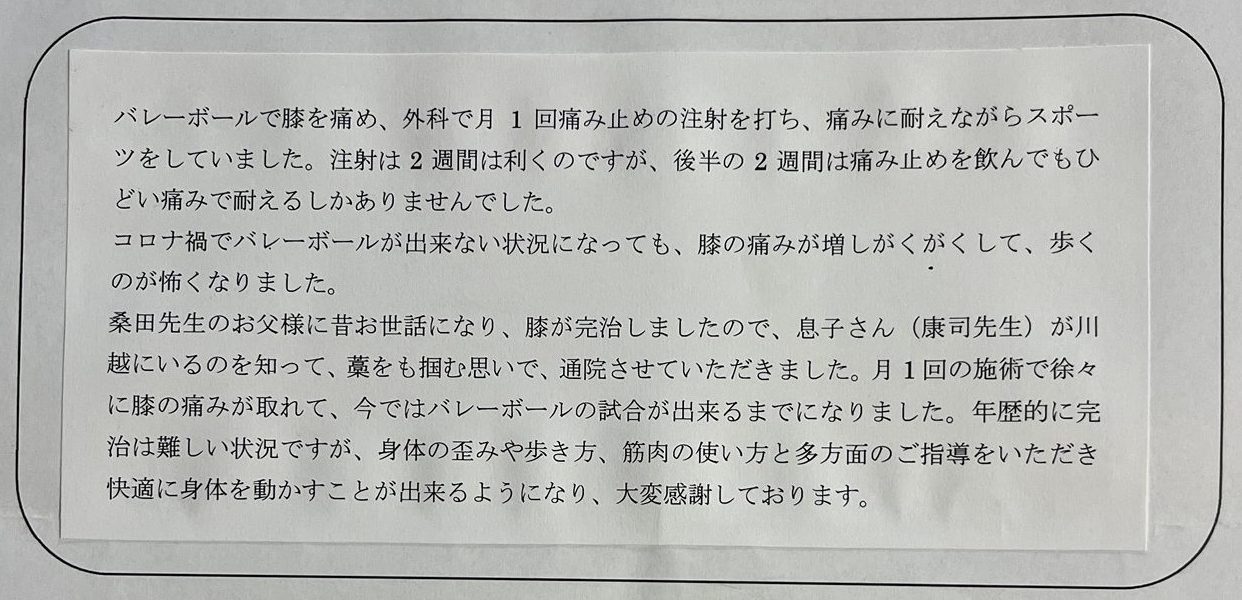 バレーボールで膝を痛め、外科で月 1 回痛み止めの注射を打ち、痛みに耐えながらスポー
ツをしていました。注射は 2 週間は利くのですが、後半の 2 週間は痛み止めを飲んでもひ
どい痛みで耐えるしかありませんでした。
コロナ禍でバレーボールが出来ない状況になっても、膝の痛みが増しがくがくして、歩く
のが怖くなりました。
桑田先生のお父様に昔お世話になり、膝が完治しましたので、息子さん（康司先生）が川
越にいるのを知って、藁をも掴む思いで、通院させていただきました。月 1 回の施術で徐々
に膝の痛みが取れて、今ではバレーボールの試合が出来るまでになりました。年歴的に完
治は難しい状況ですが、身体の歪みや歩き方、筋肉の使い方と多方面のご指導をいただき
快適に身体を動かすことが出来るようになり、大変感謝しております。